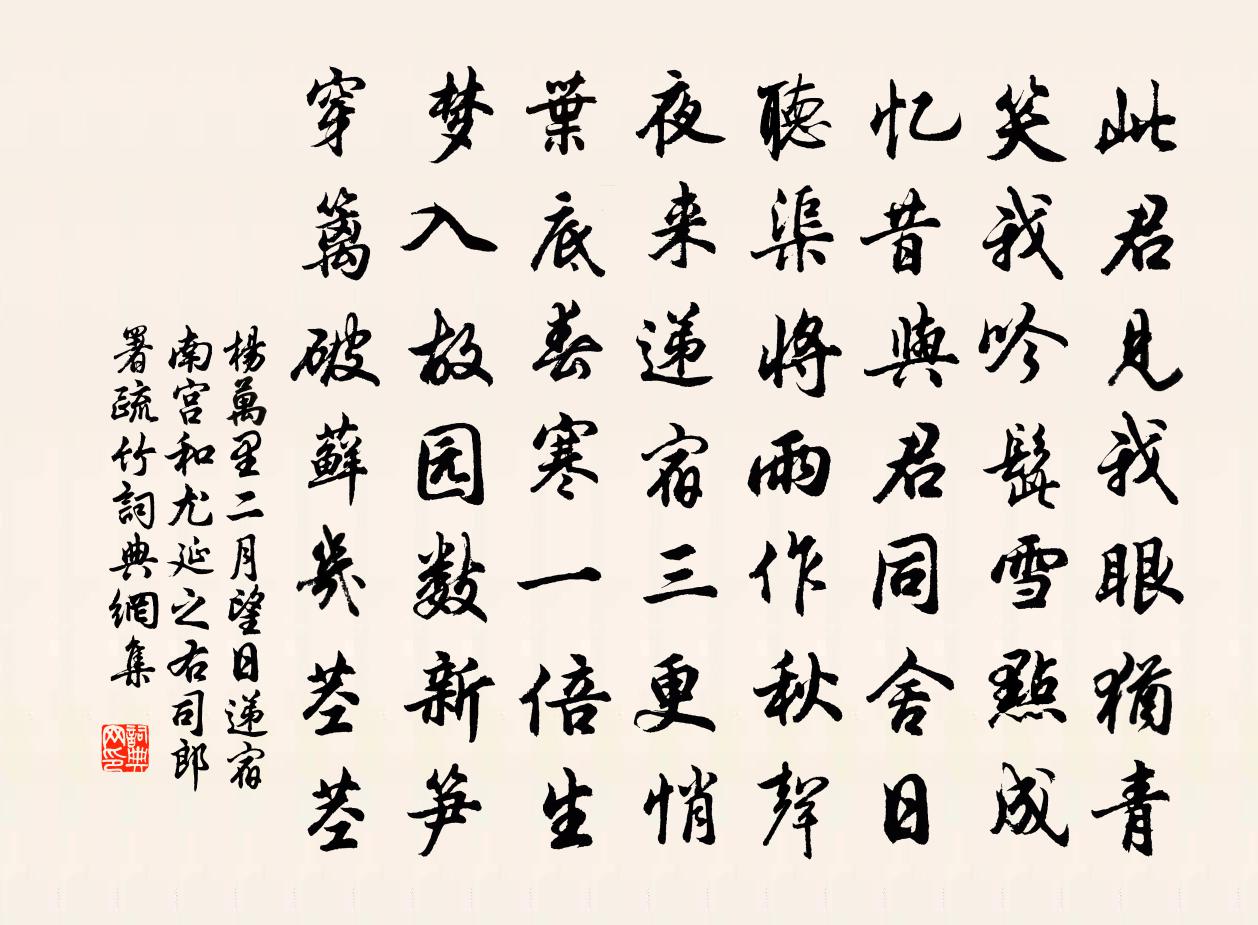 此君見我眼猶青
笑我吟髭雪點成
忆昔與君同舍日
聽渠將雨作秋聲
夜来递宿三更悄
葉底春寒一倍生
梦入故园数新笋
穿籬破蘚幾茎茎
楊萬里二月望日递宿
南宫和尤延之右司郎
署疏竹詞典網集
詞典网印